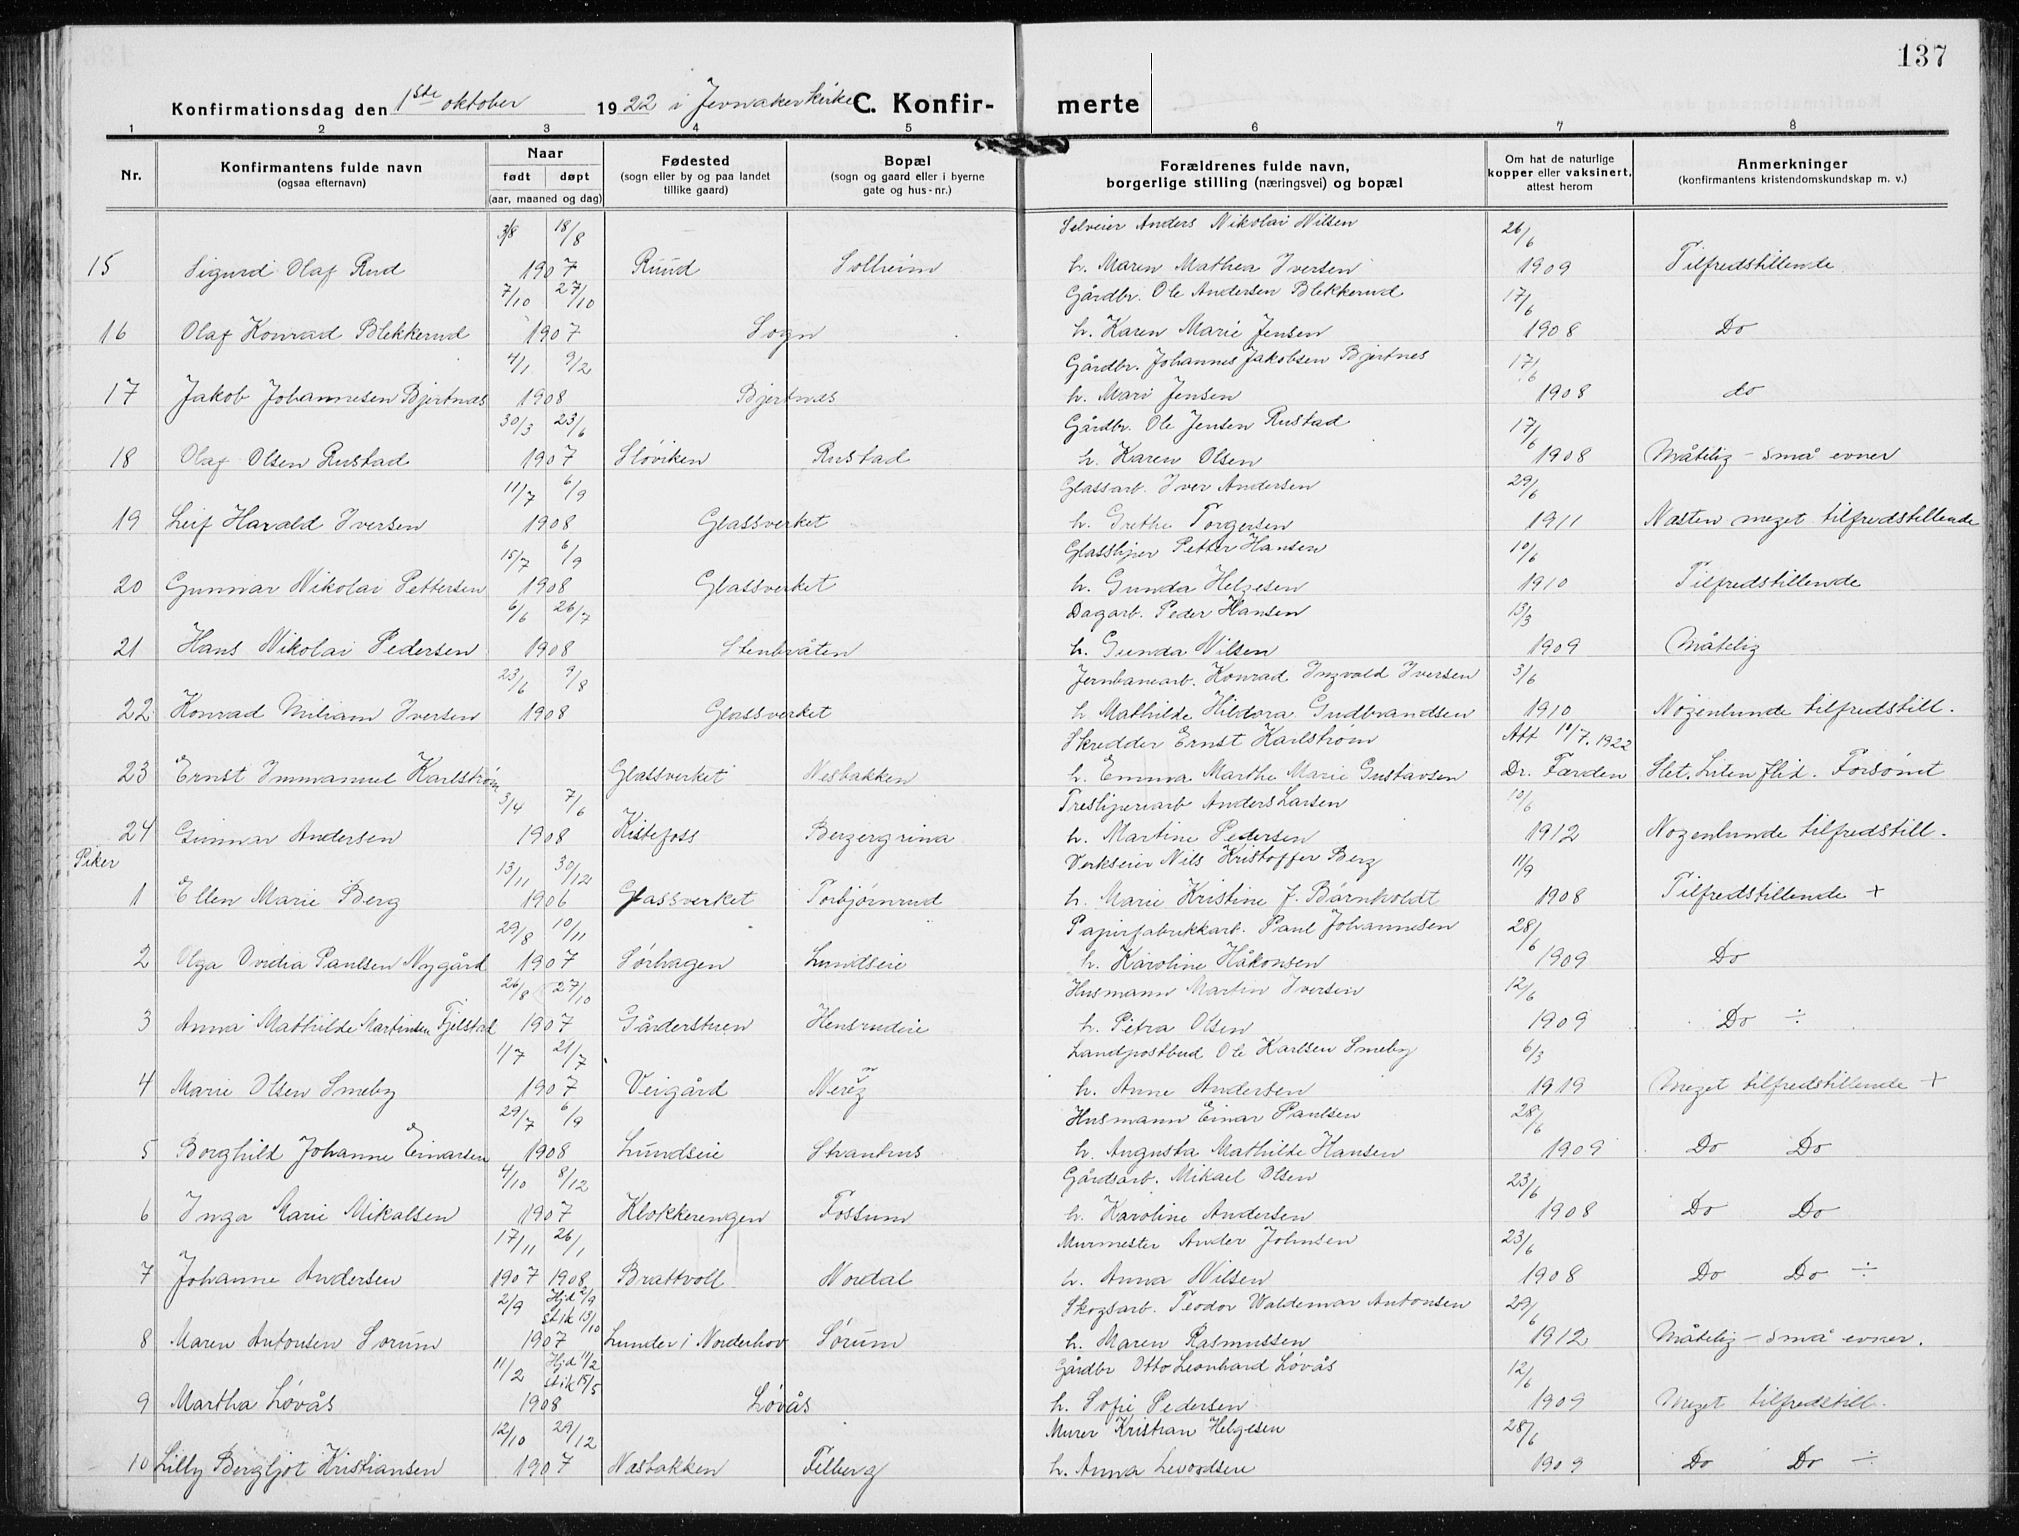 137
Konfirmationsdag den 1ste oktober 1922 i Jevnaker kirke C. Konfir- merte
1 2 3 4 5 6 7 8
Nr. Konfirmantens fulde navn (ogsaa efternavn) Naar født døpt (aar, maaned og dag) Fødested (sogn eller by og paa landet tillike gaard) Bopæl (sogn og gaard eller i byerne gate og hus-nr.) Forældrenes fulde navn, borgerlige stilling (næringsvei) og bopæl Om hat de naturlige kopper eller vaksinert, attest herom Anmerkninger (konfirmantens kristendomskundskap m. v.)
3/8 18/8 Selveier Anders Nikolai Nilsen 26/6
15 Sigurd Olaf Rud 1907 Ruud Solheim h. Maren Mathea Iversen 1909 Tilfredstillende
7/10 27/10 Gårdbr. Ole Andersen Blekkerud 17/6
16 Olaf Konrad Blekkerud 1907 Sogn h. Karen Marie Jensen 1908 Do
4/1 9/2 Gårdbr. Johannes Jakobsen Bjertnes 17/6
17 Jakob Johannesen Bjertnæs 1908 Bjertnæs h. Mari Jensen 1908 do
30/3 23/6 Gårdbr. Ole Jensen Rustad 17/6
18 Olaf Olsen Rustad 1907 Sløviken Rustad h. Karen Olsen 1908 Måtelig - små evner
11/7 6/9 Glassarb. Iver Andersen 29/6
19 Leif Harald Iversen 1908 Glassverket h. Grethe Torgersen 1911 Næsten meget tilfredstillende
15/7 6/9 Glassliper Petter Hansen 10/6
20 Gunnar Nikolai Pettersen 1908 Glassverket h. Gunda Helgesen 1910 Tilfredstillende
6/6 26/7 Dagarb. Peder Hansen 13/3
21 Hans Nikolai Pedersen 1908 Stenbråten h. Gunda Nilsen 1909 Måtelig
23/6 9/8 Jernbanearb. Konrad Ingvald Iversen 3/6
22 Konrad Miliam Iversen 1908 Glassverket h Mathilde Hildora Gudbrandsen 1910 Nogenlunde tilfredstill.
Skredder Ernst Karlstrøm Att 10/7.1922
23 Ernst Immanuel Karlstrøm Glassverket Nesbakken h. Emma Marthe Marie Gustavsen Dr. Færden Slet. Liten flid. Forsømt
3/4 7/6 Tresliperiarb Anders Larsen 10/6
24 Gunnar Andersen 1908 Kistefoss Bergergrina h. Martine Pedersen 1912 Nogenlunde tilfredstill.
Piker
13/11 30/12 Verkseier Nils Kristoffer Berg 11/9
1 Ellen Marie Berg 1906 Glassverket Torbjørnrud h. Marie Kristine J. Bårnholdt 1908 Tilfredstillende +
29/8 10/11 Papirfabrikkarb. Paul Johannesen 28/6
2 Olga Ovidia Paulsen Nygård 1907 Sørhagen Lundseie h. Karoline Håkonsen 1909 Do
26/8 27/10 Husmann Martin Iversen 12/6
3 Anna Mathilde Martinsen Fjelstad 1907 Gårderstuen Hensrudeie h. Petra Olsen 1909 Do ÷
1/7 21/7 Landpostbud Ole Karlsen Smeby 6/3
4 Marie Olsen Smeby 1907 Veigård h. Anne Andersen 1919 Meget tilfredstillende +
29/7 6/9 Husmann Einar Paulsen 28/6
5 Borghild Johanne Einarsen 1908 Lundseie h. Augusta Mathilde Hansen 1909 Do Do
4/10 8/12 Gårdsarb. Mikael Olsen 23/6
6 Inga Marie Mikalsen 1907 Klokkerengen Fossum h. Karoline Andersen 1908 Do Do
17/11 26/1 Murmester Ander Johnsen 23/6
7 Johanne Andersen 1907 1908 Brattvoll Nordal h. Anna Nilsen 1908 Do Do ÷
2/9 Hjd 2/9 stik 13/10 Skogsarb. Teodor Waldemar Antonsen 29/6
8 Maren Antonsen Sorum 1907 Lunder i Norderhov Sørum h. Maren Rasmussen 1912 Måtelig - små evner.
11/2 Hjd 11/2 stik 15/5 Gårdbr Otto Leonhard Løvås 12/6
9 Martha Løvås 1908 Løvås h. Sofie Pedersen 1909 Meget tilfredstill.
12/10 29/12 Murer Kristian Helgesen 28/6
10 Lilly Bergljot Kristiansen 1907 Næsbakken Felberg h. Anna 1909 Do Do ÷